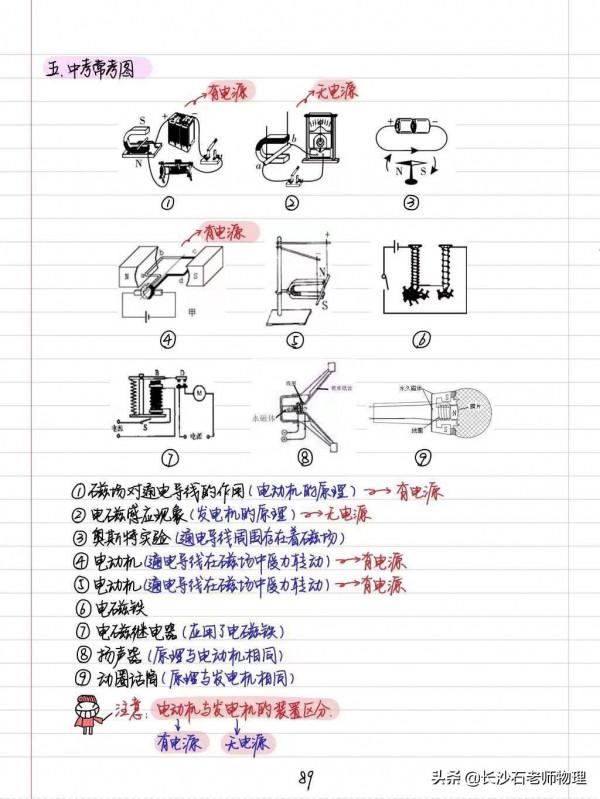 五.中考常考图
有电源
无电源
S
N
+
−
a
b
+
−
N
S
①
②
③
有电源
N
b
c
d
S
甲
+
−
N
S
④
⑤
⑥
M
电源
S
电源
线圈
永磁体
永久磁体
膜片
线圈
N
⑦
⑧
⑨
①磁场对通电导线的作用(电动机的原理)→有电源
②电磁感应现象(发电机的原理)→无电源
③奥斯特实验(通电导线周围存在着磁场)
④电动机(通电导线在磁场中受力转动)→有电源
⑤电动机(通电导线在磁场中受力转动)→有电源
⑥电磁铁
⑦电磁继电器(应用了电磁铁)
⑧扬声器(原理与电动机相同)
⑨动圈话筒(原理与发电机相同)
注意:电动机与发电机的装置区分.
有电源 无电源
89
头条@长沙石老师物理